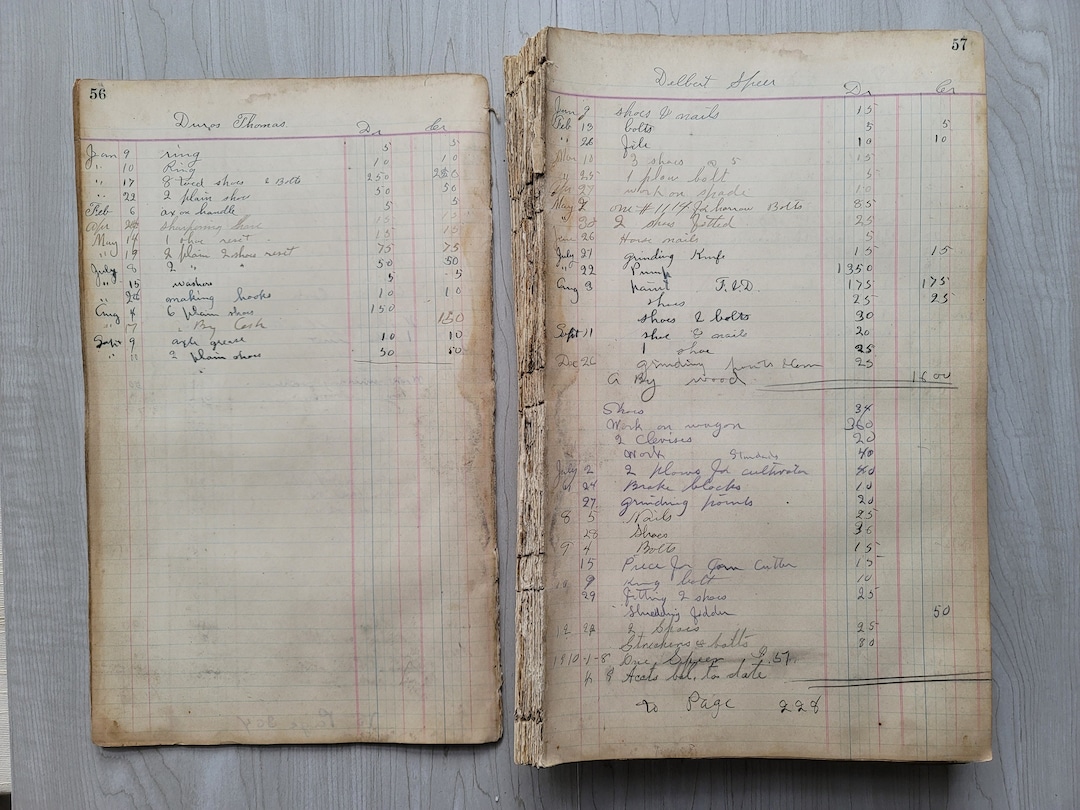 56
Thomas
Dr Cr
Jan 9 ring 5 5
" 10 Ring 10 10
" 17 8 toed shoes & Bolts 250 250
" 22 2 plain shoes 50 50
Feb 6 ax handle 5 5
Apr sharpening 15 15
May 14 1 shoe reset 15 15
" 19 2 plain 2 shoes reset 75 75
July 8 2 " " 50 50
" 15 washers 5 5
" making hooks 10 10
Aug 4 6 plain shoes 150
" 17 " By Cash 150
Sept 9 axle grease 10 10
" " 2 plain shoes 50 50
57
Delbert Speer
Dr Cr
Jan 9 shoes & nails 15
Feb 13 bolts 5 5
" 26 file 10 10
Mar 10 3 shoes @ 5 15
" 25 1 plow bolt 5
Apr 27 work on spade 10
May harrow Bolts 85
" 30 2 shoes fitted 25
June 26 Horse nails 5
July 21 grinding Knife 15 15
" 22 Pump 1350
Aug 3 paint 175 175
shoes 25 25
shoes & bolts 30
Sept 11 shoe & nails 20
1 shoe 25
Dec 26 grinding 25
By wood 1600
Shoes 34
Work on wagon 360
2 Clevises 20
Work 40
July 2 2 plows for cultivator 80
" 24 Brake blocks 10
27 grinding points 20
8 5 Nails 25
28 Shoes 36
9 4 Bolts 15
15 Piece for Corn Cutter 15
9 King bolt 10
29 Fitting 2 shoes 25
Shredding fodder 50
12 2 25
& bolts 80
1910-1-8 Due Speer .57
" 8 Accts bal. to date
to Page 228